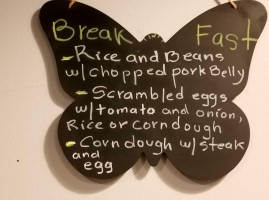 Break Fast
- Rice and Beans
w/chopped pork Belly
- Scrambled eggs
w/tomato and onion,
Rice or Corn dough
- Corn dough w/ steak
and
egg